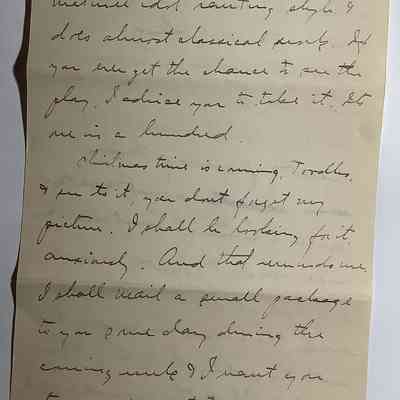 matinee idol ranting style &
does almost classical work. If
you ever get the chance to see the
play, I advise you to take it. It's
one in a hundred.
Christmas time is coming, Toodles,
& see to it, you dont forget my
picture. I shall be looking for it,
anxiously. And that reminds me,
I shall mail a small package
to you some day during the
coming week & I want you